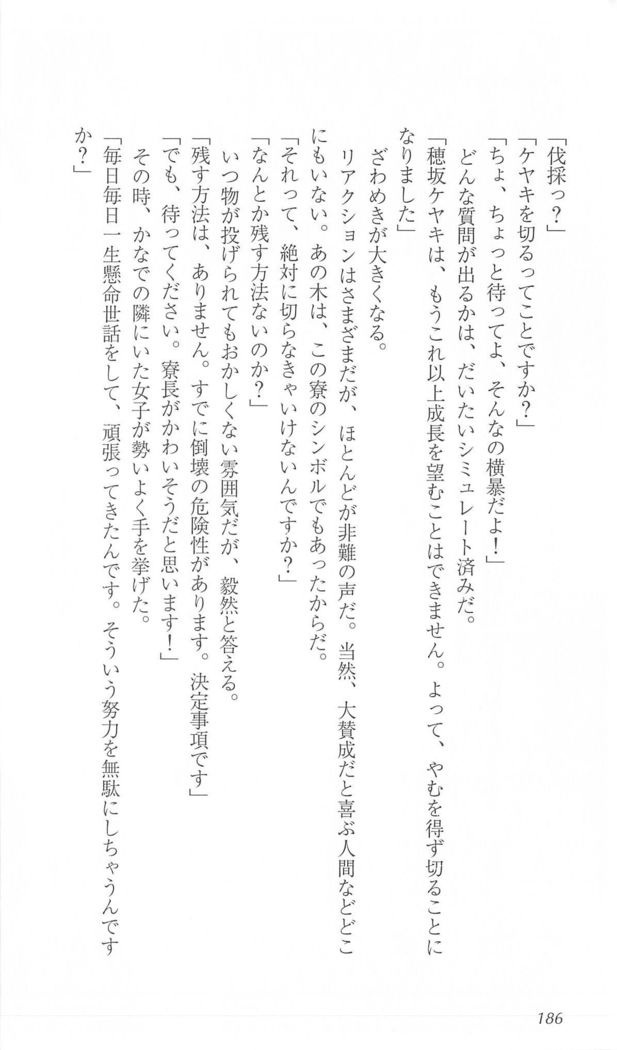 「伐採っ？」
「ケヤキを切るってことですか？」
「ちょ、ちょっと待ってよ、そんなの横暴だよ！」
　どんな質問が出るかは、だいたいシミュレート済みだ。
「穂坂ケヤキは、もうこれ以上成長を望むことはできません。よって、やむを得ず切ることに
なりました」
　ざわめきが大きくなる。
　リアクションはさまざまだが、ほとんどが非難の声だ。当然、大賛成だと喜ぶ人間などどこ
にもいない。あの木は、この寮のシンボルでもあったからだ。
「それって、絶対に切らなきゃいけないんですか？」
「なんとか残す方法ないのか？」
　いつ物が投げられてもおかしくない雰囲気だが、毅然と答える。
「残す方法は、ありません。すでに倒壊の危険性があります。決定事項です」
「でも、待ってください。寮長がかわいそうだと思います！」
　その時、かなでの隣にいた女子が勢いよく手を挙げた。
「毎日毎日一生懸命世話をして、頑張ってきたんです。そういう努力を無駄にしちゃうんです
か？」
186